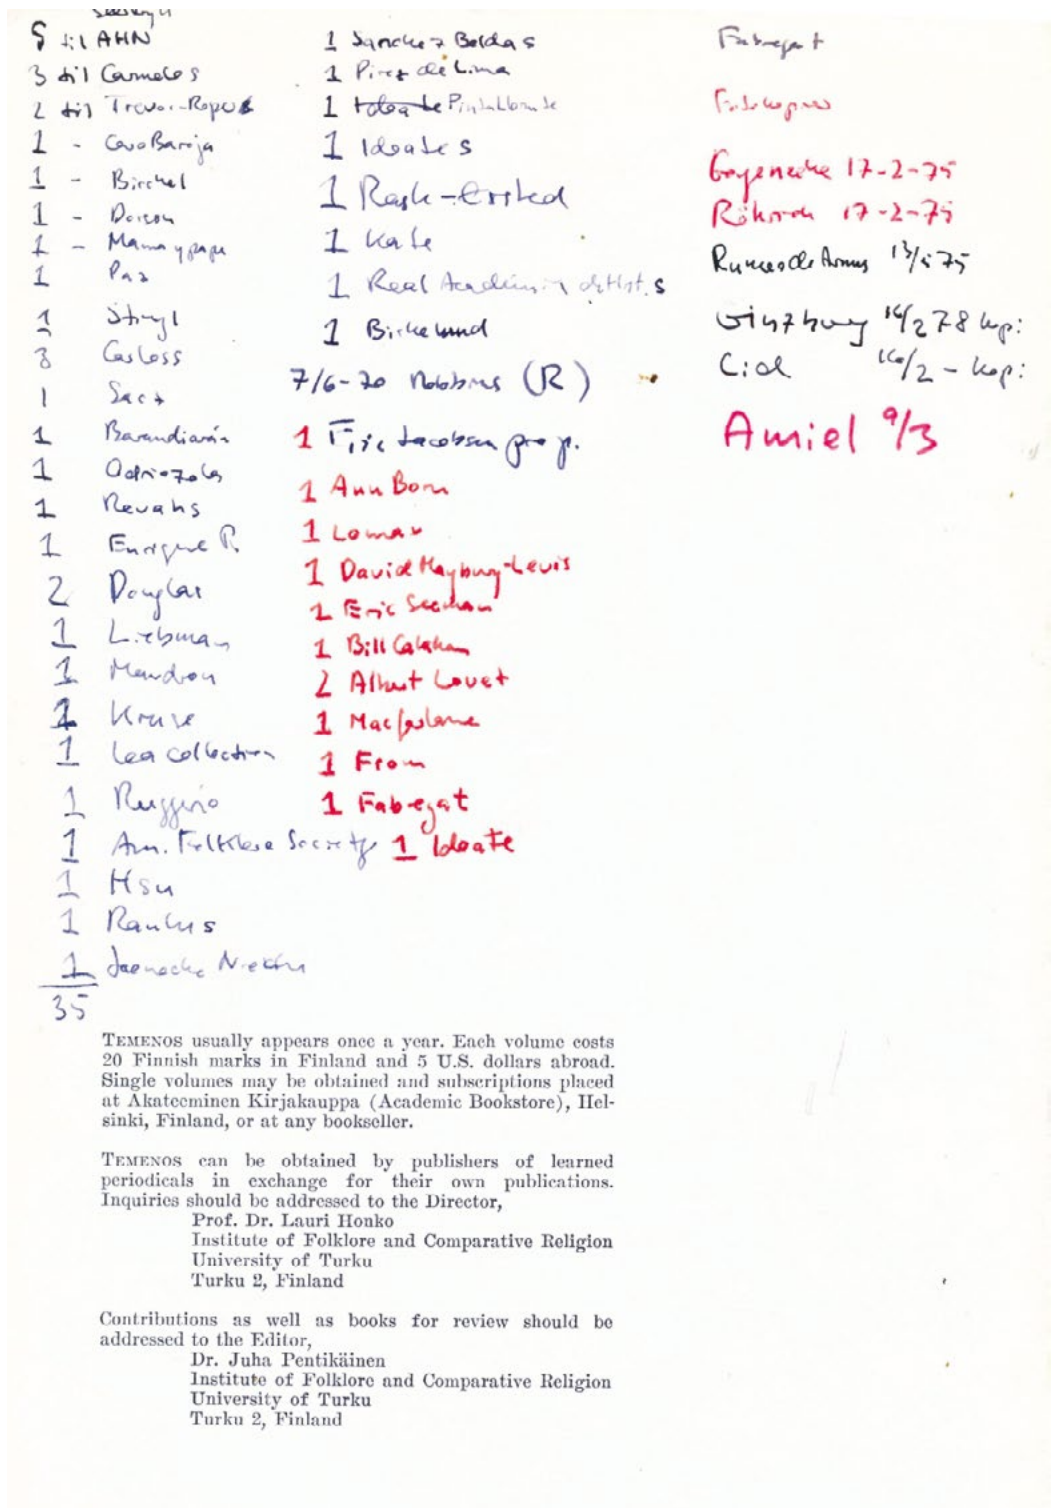 5 til AHN
3 til Carmelos
2 til Trevor-Roper
1 - Caro Baroja
1 -
1 -
1 - Mama y papa
1 Paz
1
3
1
1 Barandiarán
1 Odriozola
1 Revahs
1 Enrique R.
2 Douglas
1 Liebman
1 Mandrou
1 Kruse
1 Lea collection
1 Ruggiero
1 Am. Folklore Society
1 Hsu
1
1
35
1 Sanchez
1 Pirez de Lima
1
1 Idoate s
1 Rask-Ørsted
1 Kate
1 Real Academia de Hist. s
1 Birkelund
7/6-70 Robbins (R)
1 Eric Jacobsen
1 Ann Born
1 Lomax
1 David Maybury-Lewis
1 Eric
1 Bill
2 Albert Lovet
1 Macfarlane
1 From
1 Fabregat
1 Idoate
Fabregat
Fotokopier
Goyeneche 17-2-75
17-2-75
75
Ginzburg 16/2 78 kopi
Cid 16/2 - kopi
Amiel 9/3
TEMENOS usually appears once a year. Each volume costs
20 Finnish marks in Finland and 5 U.S. dollars abroad.
Single volumes may be obtained and subscriptions placed
at Akateeminen Kirjakauppa (Academic Bookstore), Hel-
sinki, Finland, or at any bookseller.
TEMENOS can be obtained by publishers of learned
periodicals in exchange for their own publications.
Inquiries should be addressed to the Director,
Prof. Dr. Lauri Honko
Institute of Folklore and Comparative Religion
University of Turku
Turku 2, Finland
Contributions as well as books for review should be
addressed to the Editor,
Dr. Juha Pentikäinen
Institute of Folklore and Comparative Religion
University of Turku
Turku 2, Finland